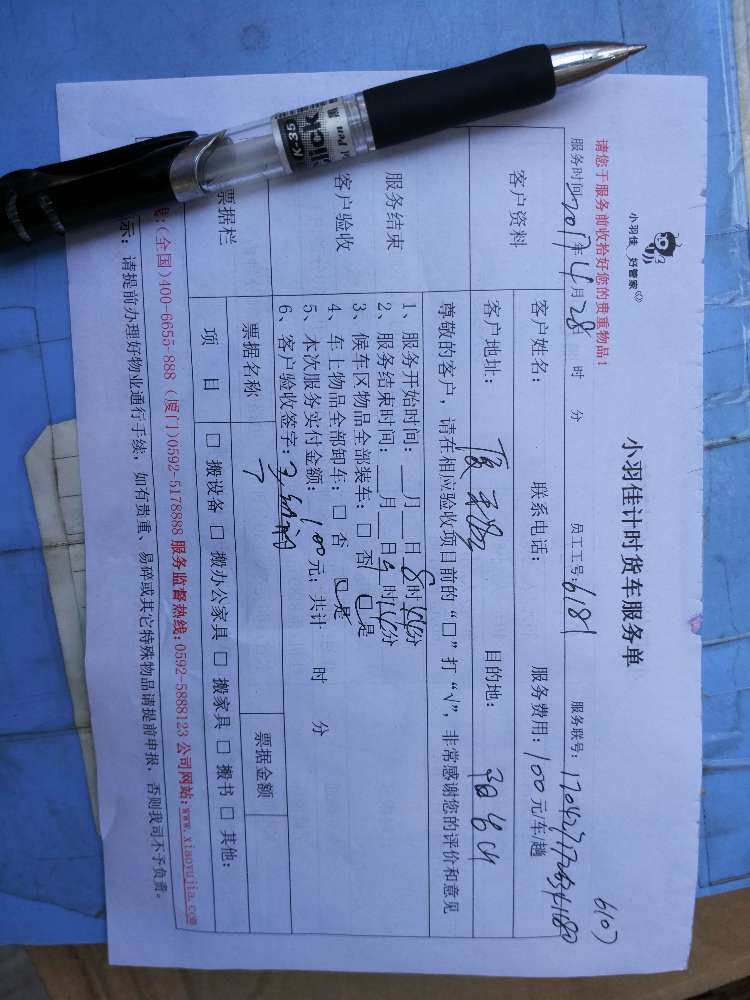 小羽佳 好管家
小羽佳计时货车服务单
6107
请您于服务前收拾好您的贵重物品！
服务时间：2017年4月28日 时 分 员工工号：6181 服务联号：
客户资料
客户姓名： 联系电话： 服务费用：100元/车/趟
客户地址： 目的地：
尊敬的客户，请在相应验收项目前的“□”打“√”，非常感谢您的评价和意见
服务结束
客户验收
1、服务开始时间：__月__日8时44分
2、服务结束时间：__月__日9时16分
3、候车区物品全部装车：□ 否 □是
4、车上物品全部卸车：□ 否 □是
5、本次服务实付金额：100元；共计 时 分
6、客户验收签字：
票据栏
票据名称 票据金额
项 目 □ 搬设备 □ 搬办公家具 □ 搬家具 □ 搬书 □ 其他：
线：(全国)400-6655-888 (厦门)0592-5178888 服务监督热线：0592-5888123 公司网站：www.xiaoyujia.com
示：请提前办理好物业通行手续，如有贵重、易碎或其它特殊物品请提前申报，否则我司不予负责。
K-35